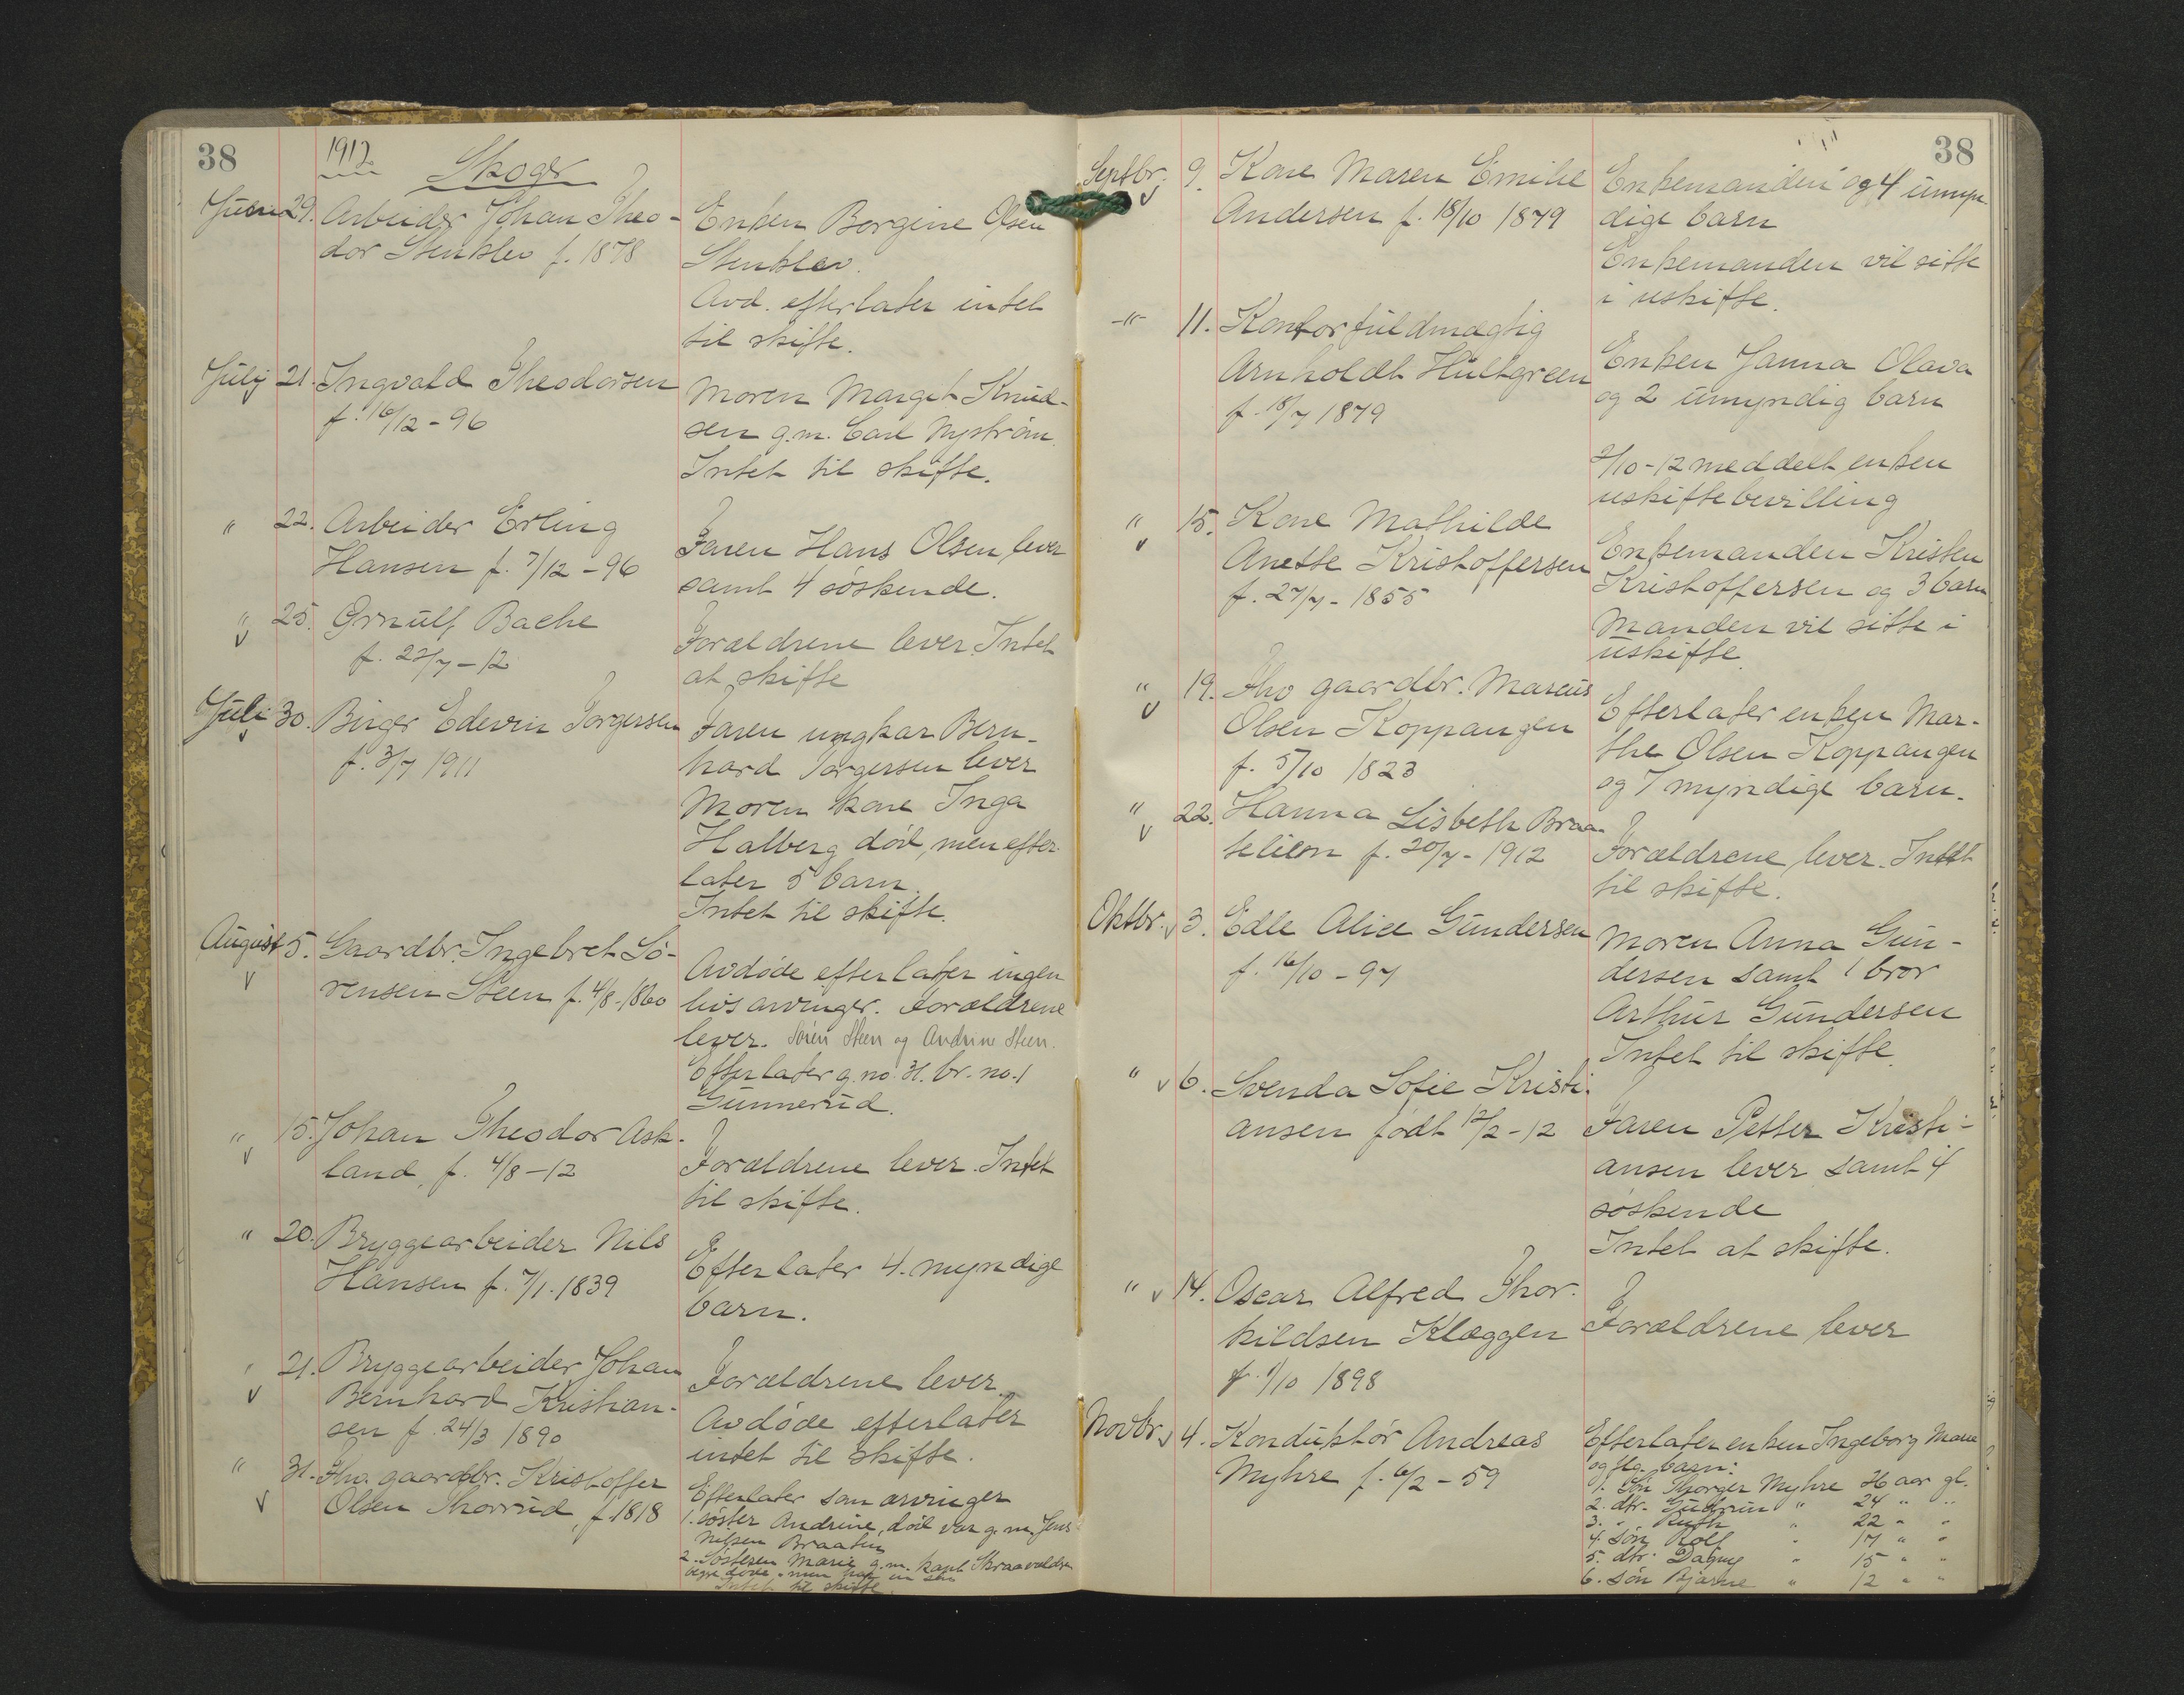 38
1912
Skoger
Juni 29. Arbeider Johan Theo-
dor Stenklev f. 1878
Enken Borgine Olsen
Stenklev.
Avd. efterlater intet
til skifte.
July 21. Ingvald Theodorsen
f. 16/12 - 96
Moren Margit Knud-
sen g.m. Carl Nyström.
Intet til skifte.
" 22. Arbeider Erling
Hansen f. 7/12 - 96
Faren Hans Olsen lever
samt 4 søskende.
" 25. Ørnulf Bache
f. 22/7 - 12
Forældrene lever. Intet
at skifte
Juli 30. Birger Edevin Torgersen
f. 3/7 1911
Faren ungkar Bern-
hard Torgersen lever
Moren kone Inga
Halberg død, men efter-
later 5 barn.
Intet til skifte.
August 5. Gaardbr. Ingebret Sø-
rensen Steen f. 4/8 - 1860
Avdøde efterlater ingen
livsarvinger. Forældrene
lever. Søren Steen og Andrine Steen.
Efterlater g. no. 31. br. no. 1
Gunnerud.
" 15. Johan Theodor Ask-
land, f. 4/8 - 12
Forældrene lever. Intet
til skifte.
" 20. Bryggearbeider Nils
Hansen f. 7/1. 1839
Efterlater 4. myndige
barn.
" 21. Bryggearbeider Johan
Bernhard Kristian-
sen f. 24/3 1890
Forældrene lever.
Avdøde efterlater
intet til skifte.
" 31. Fhv. gaardbr. Kristoffer
Olsen Thorrud, f. 1818
Efterlater som arvinger
1. søster Andrine, død var g.m. Jens
Nilsen Braaten
2. Søsteren Marie g.m.
begge døde men
Intet til skifte.
38
Septbr. 9. Kone Maren Emilie
Andersen f. 18/10 1879
Enkemanden og 4 umyn
dige barn
Enkemanden vil sitte
i uskifte.
-"- 11. Kontorfuldmægtig
Arnholdt Hultgreen
f. 18/7 1879
Enken Janna Olava
og 2 umyndig barn
2/10 - 12 meddelt enken
uskiftebevilling
" 15. Kone Mathilde
Anette Kristoffersen
f. 27/7 - 1855
Enkemanden Kristen
Kristoffersen og 3 barn
Manden vil sitte i
uskifte.
" 19. Fhv gaardbr. Marcus
Olsen Koppangen
f. 5/10 1823
Efterlater enken Mar-
the Olsen Koppangen
og 7 myndige barn.
" 22. Hanna Lisbeth Braa-
telien f. 20/7 - 1912
Forældrene lever. Intet
til skifte.
Oktbr. 3. Edle Alice Gundersen
f. 16/10 - 97
Moren Anna Gun-
dersen samt 1 bror
Arthur Gundersen
Intet til skifte.
" 6. Svenda Sofie Kristi-
ansen født 12/2 - 12
Faren Petter Kristi-
ansen lever samt 4
søskende
Intet at skifte.
" 14. Oscar Alfred Thor-
kildsen Klæggen
f. 1/10 1898
Forældrene lever
Novbr. 4. Konduktør Andreas
Myhre f. 6/2 - 59
Efterlater enken Ingeborg Marie
og flg. barn:
1. Søn Thorger Myhre 26 aar gl.
2. dtr. Gudrun " 24 " "
3. " Ruth " 22 " "
4. Søn Rolf " 17 " "
5. dtr. Dagny " 15 " "
6. søn Bjarne " 12 " "